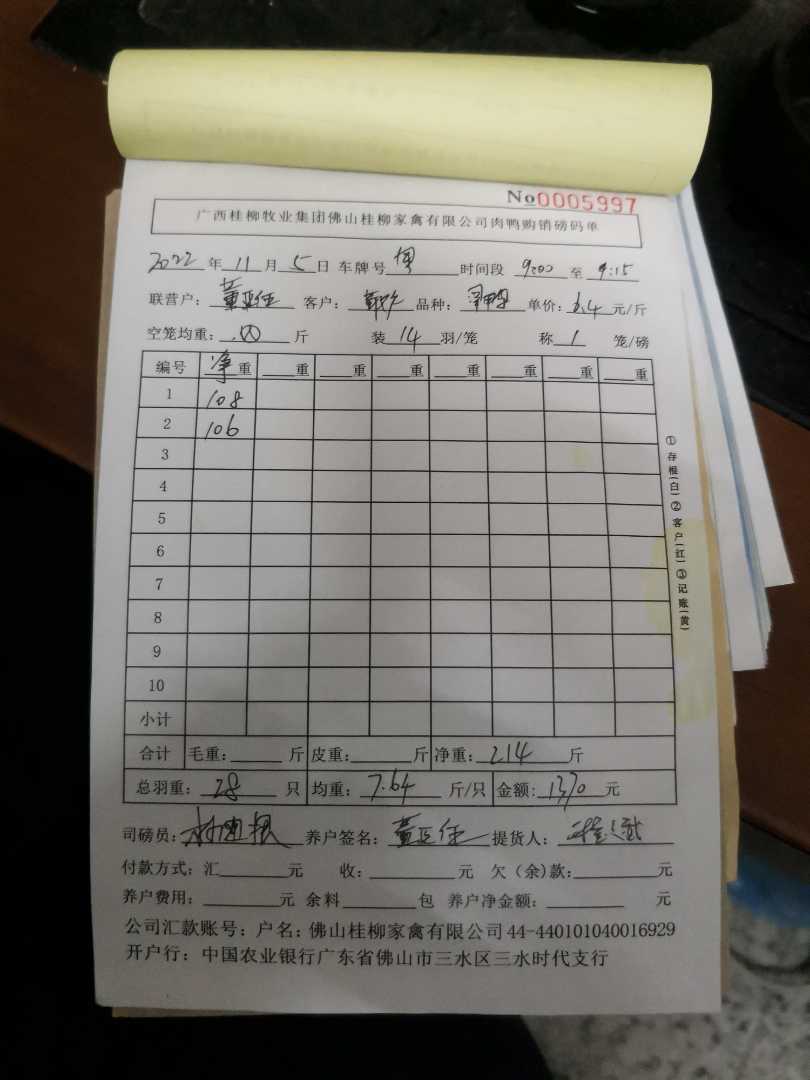 No0005997
广西桂柳牧业集团佛山桂柳家禽有限公司肉鸭购销磅码单
2022年11月5日 车牌号 时间段 9:00至9:15
联营户：董亚任 客户： 品种： 单价：6.4元/斤
空笼均重： 斤 装14羽/笼 称1笼/磅
编号 净重 重 重 重 重 重 重 重
1 108
2 106
3
4
5
6
7
8
9
10
小计
合计 毛重： 斤 皮重： 斤 净重：214斤
总羽重：28只 均重：7.64斤/只 金额：1370元
司磅员： 养户签名：董亚任 提货人：
付款方式：汇 元 收： 元 欠（余）款： 元
养户费用： 元 余料 包 养户净金额： 元
公司汇款账号：户名：佛山桂柳家禽有限公司44-440101040016929
开户行：中国农业银行广东省佛山市三水区三水时代支行
①存根(白)②客户(红)③记账(黄)